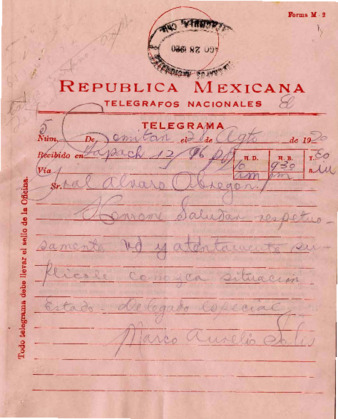 Forma M-2
AGO 28 1920
REPUBLICA MEXICANA
TELEGRAFOS NACIONALES
TELEGRAMA
Núm. 5 De Comitan el 28 Agto de 1920
Recibido en Tapach
H.D. H.R. T.
Vía 10 am 930 m
Sr. Gral Alvaro Obregon
Honrome Saludar respetuo-
samente Ud y atentamente su-
plicole conozca situación
Estado delegado especial
Marco Aurelio Solis
Todo telegrama debe llevar el sello de la Oficina.